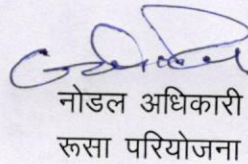 नोडल अधिकारी
रूसा परियोजना